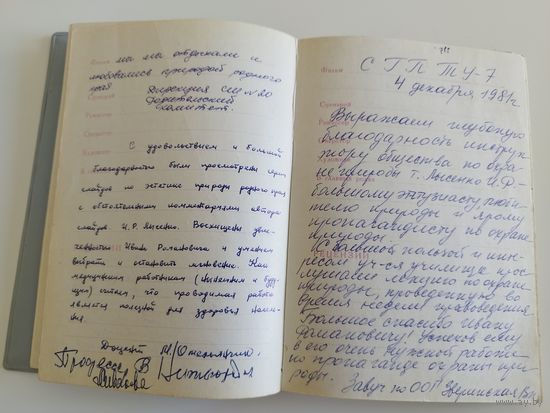 мы мы отдыхали и
любовались природой родного
края
Дирекция СШ № 20
Родительский
комитет.
С удовольствием и большой
благодарностью были просмотрены
слайдов по эстетике природы родного края
с обстоятельными комментариями автора
слайдов И.Р. Лысенко. Восхищены увле-
ченностью Ивана Романовича и умением
выбрать и остановить мгновение. Как
медицинские работники (нынешним и буду-
щим) считаем, что проводимая работа
является полезной для здоровья населе-
ния.
Доцент
Профессор
Фильм
СГПТУ-7
4 декабря 1981г
Сценарий
Выражаем глубокую
благодарность инструк-
тору общества по охра-
не природы т. Лысенко И.Р.-
большому энтузиасту, люби-
телю природы и ярому
пропагандисту по охране
природы.
С большой пользой и инте-
ресом уч-ся училища прос-
лушали лекцию по охране
природы, проведенную во
время недели правоведения
Большое спасибо Ивану
Романовичу! Успехов ему
в его очень нужной работе
по пропаганде охраны при-
роды.
Завуч по ООП